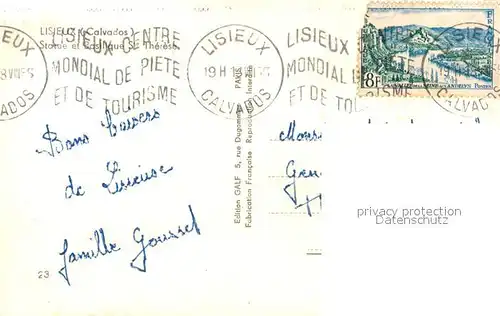 LISIEUX (Calvados)
Statue et Basilique Ste Thérèse
LISIEUX CENTRE
MONDIAL DE PIETE
ET DE TOURISME
LISIEUX
19 H
CALVADOS
LISIEUX
MONDIAL
ET DE TOURISME
8F
Bons baisers
de Lisieux
famille Gousset
23
Edition GALF 5, rue Dugommier PARIS
Fabrication Française Reproduction Interdite
privacy protection
Datenschutz